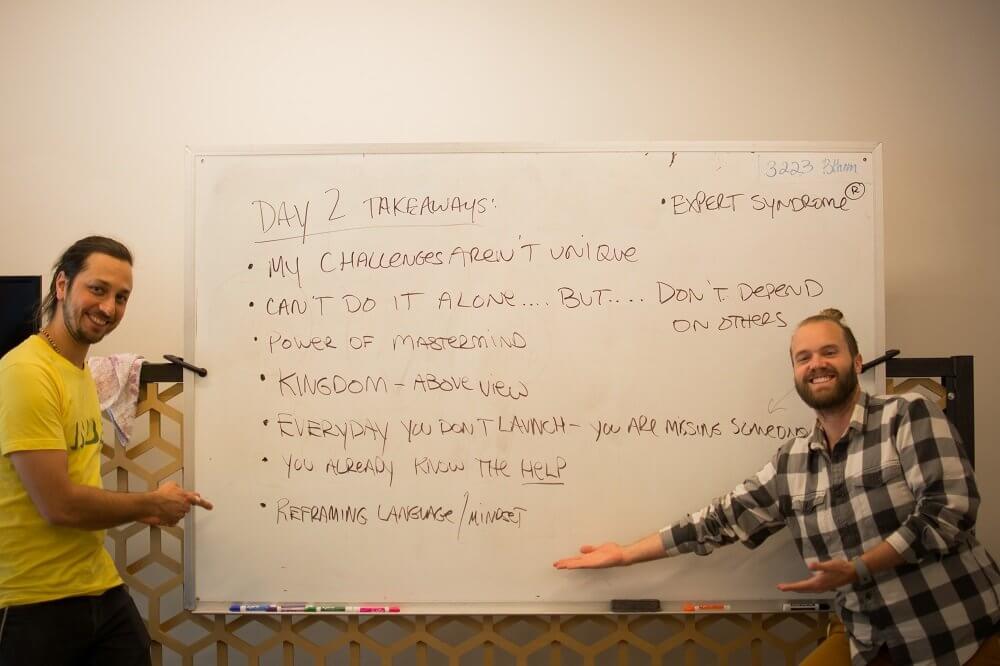 3223
DAY 2 TAKEAWAYS:
• EXPERT SYNDROME ®
• MY CHALLENGES AREN'T UNIQUE
• CAN'T DO IT ALONE.... BUT.... DON'T DEPEND
ON OTHERS
• POWER OF MASTERMIND
• KINGDOM - ABOVE VIEW
• EVERYDAY YOU DON'T LAUNCH - YOU ARE MISSING SOMEONE
• YOU ALREADY KNOW THE HELP
• REFRAMING LANGUAGE / MINDSET